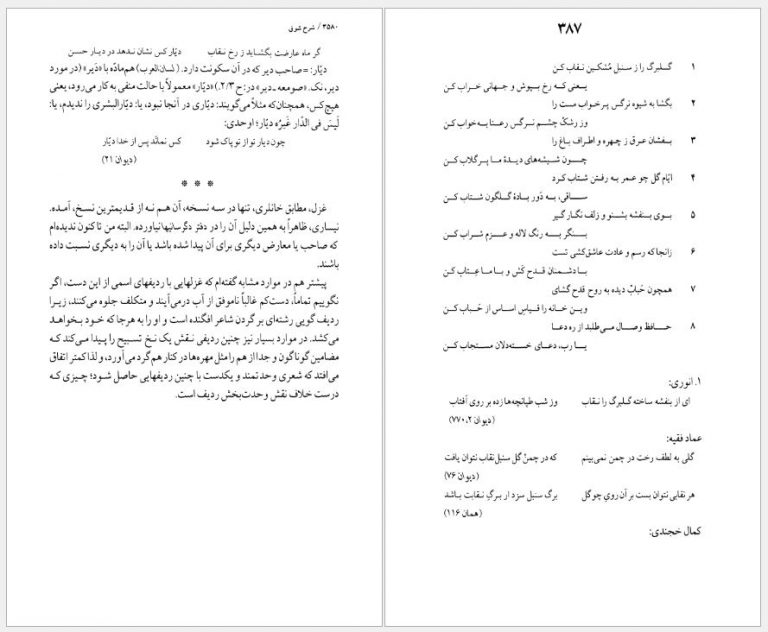 ۳۸۷
۱ گلبرگ را ز سنبل مُشکین نقاب کن
یعنی که رخ بپوش و جهانی خراب کن
۲ بگشا به شیوه نرگس پرخواب مست را
وز رشکْ چشمِ نرگس رعنا به‌خواب کن
۳ بفشان عرق ز چهره و اطراف باغ را
چون شیشه‌های دیدهٔ ما پرگلاب کن
۴ ایّام گل چو عمر به رفتن شتاب کرد
ساقی، به دَور بادهٔ گلگون شتاب کن
۵ بوی بنفشه بشنو و زلف نگار گیر
بنگر به رنگ لاله و عزم شراب کن
۶ زانجا که رسم و عادت عاشق‌کشی تست
با دشمنان قدح کَش و با ما عِتاب کن
۷ همچون حَبابْ دیده به روح قدح گشای
وین خانه را قیاسِ اساس از حَباب کن
۸ حافظ وصال می‌طلبد از ره دعا
یا رب، دعای خسته‌دلان مستجاب کن
۱. انوری:
ای از بنفشه ساخته گلبرگ را نقاب وز شب طپانچه‌ها زده بر روی آفتاب
(دیوان ۷۷۰،۲)
عماد فقیه:
گلی به لطف رخت در چمن نمی‌بینم که در چمنْ گل سنبل‌نقاب نتوان یافت
(دیوان ۷۶)
هر نقابی نتوان بست بر آن رویِ چو گل برگ سنبل سزد ار برگِ نقابت باشد
(همان ۱۱۶)
کمال خجندی:
۳۵۸۰ / شرح شوق
گر ماه عارضت بگشاید ز رخ نقاب دیّار کس نشان ندهد در دیار حسن
دیّار: =صاحب دیر که در آن سکونت دارد. (لسان‌العرب) هم‌مادّه با «دَیر» (در مورد
دیر، نک. «صومعه ـ دیر» در: ح ۲/۳.) «دیّار» معمولاً با حالت منفی به کار می‌رود، یعنی
هیچ‌کس، همچنان‌که مثلاً می‌گویند: دیّاری در آنجا نبود، یا: دیّارالبشری را ندیدم، یا:
لَیسَ فی الدّار غَیرُه دیّار؛ اوحدی:
چون دیار تو از تو پاک شود کس نماند پس از خدا دیّار
(دیوان ۲۱)
* * *
غزل، مطابق خانلری، تنها در سه نسخه، آن هم نه از قدیمترین نسخ، آمده.
نیساری، ظاهراً به همین دلیل آن را در دفتر دگرسانیها نیاورده. البته من تا کنون ندیده‌ام
که صاحب یا معارض دیگری برای آن پیدا شده باشد یا آن را به دیگری نسبت داده
باشند.
پیشتر هم در موارد مشابه گفته‌ام که غزلهایی با ردیفهای اسمی از این دست، اگر
نگوییم تماماً، دست‌کم غالباً ناموفق از آب درمی‌آیند و متکلف جلوه می‌کنند، زیرا
ردیف گویی رشته‌ای بر گردن شاعر افگنده است و او را به هرجا که خود بخواهد
می‌کشد. در موارد بسیار نیز چنین ردیفی نقش یک نخ تسبیح را پیدا می‌کند که
مضامین گوناگون و جدا از هم را مثل مهره‌ها در کنار هم گرد می‌آورد، و لذا کمتر اتفاق
می‌افتد که شعری وحدتمند و یکدست با چنین ردیفهایی حاصل شود؛ چیزی که
درست خلاف نقش وحدت‌بخش ردیف است.